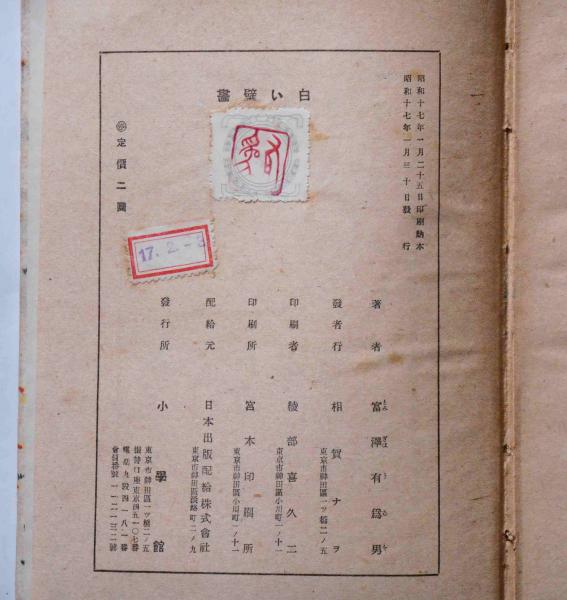 昭和十七年一月二十五日印刷納本
昭和十七年一月三十日發行
白い壁畫
㊞定價二圓
17. 2. -3
著者 富澤有爲男
とみざはうゐを
發行者 相賀ナヲ
東京市神田區一ツ橋二ノ五
印刷者 綾部喜久二
東京市神田區小川町一ノ十一
印刷所 宮本印刷所
東京市神田區小川町一ノ十一
配給元 日本出版配給株式會社
東京市神田區淡路町二ノ九
發行所 小學館
東京市神田區一ツ橋二ノ五